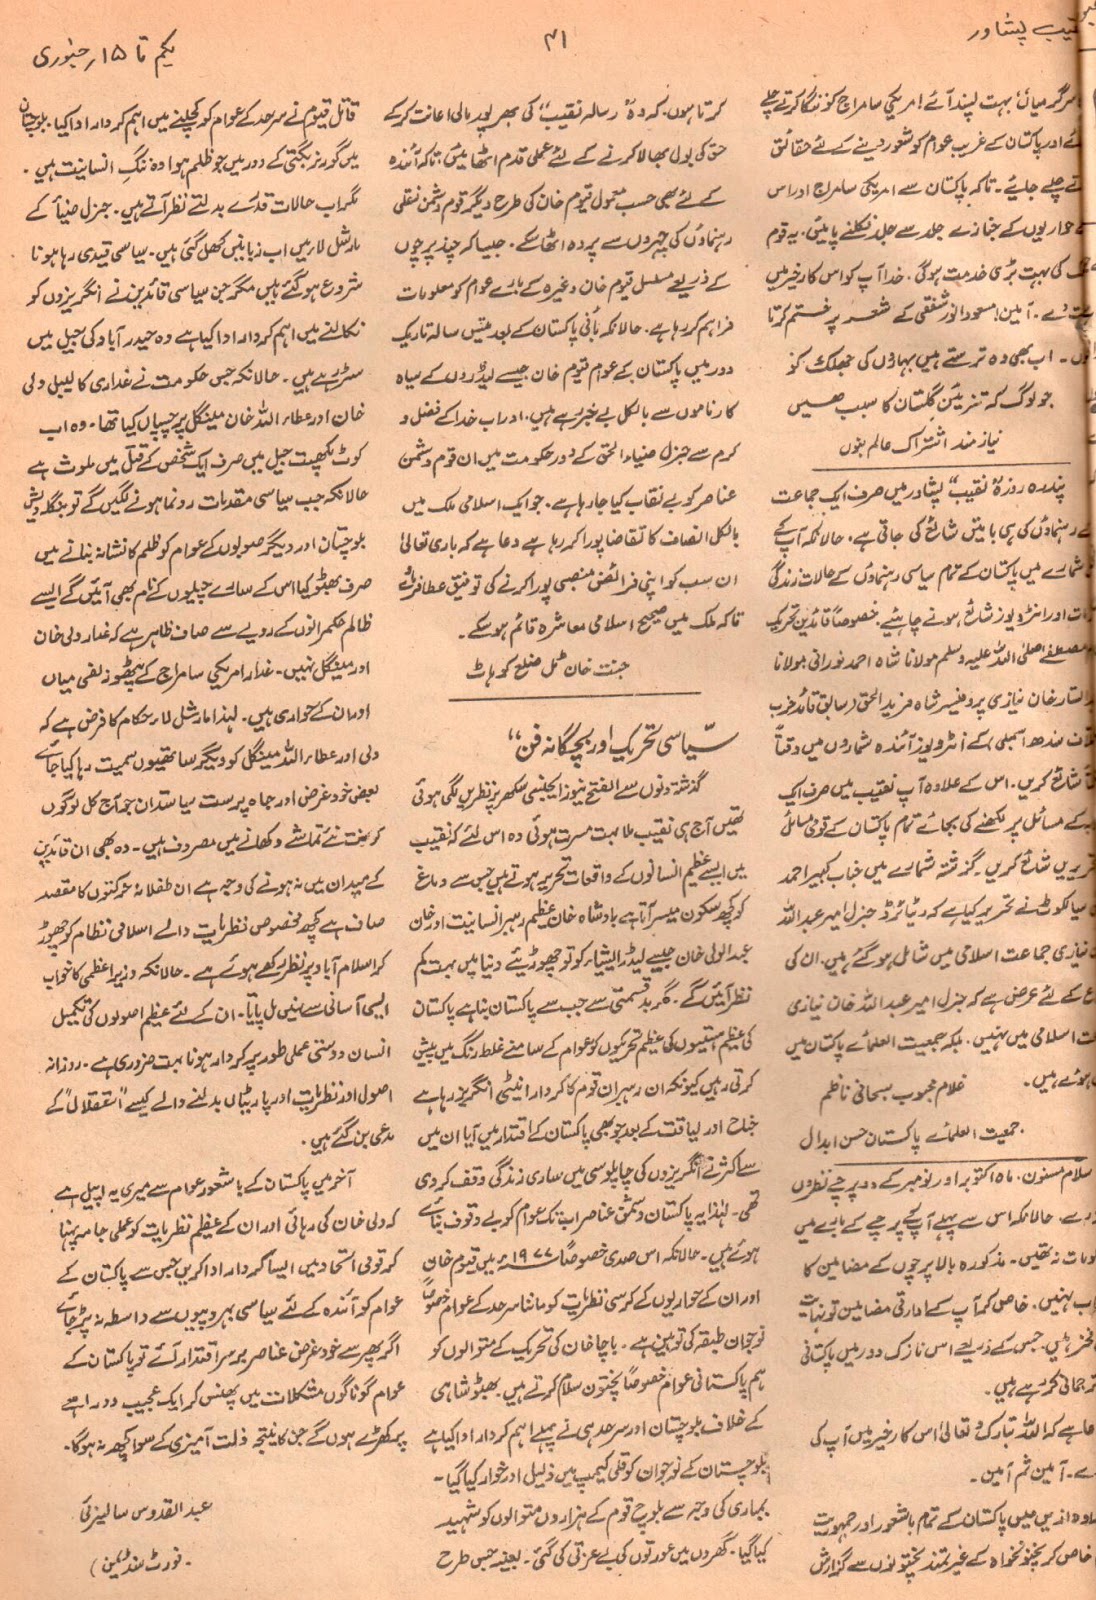 نقیب پشاور
۴۱
یکم تا ۱۵؍ جنوری
سرگرمیاں‘‘ بہت پسند آئے امریکی سامراج کو ننگا کرتے چلے
اور پاکستان کے غریب عوام کو شعور دینے کے لئے حقائق
چلے جائیے۔ تاکہ پاکستان سے امریکی سامراج اور اس
حواریوں کے جنازے جلد سے جلد نکلنے پائیں۔ یہ قوم
کی بہت بڑی خدمت ہوگی۔ خدا آپ کو اس کار خیر میں
دے۔ آمین! مسعود انور شفقی کے شعر پر ختم کرتا
۔ اب بھی وہ ترستے ہیں بہاروں کی جھلک کو
جو لوگ کہ تزئین گلستان کا سبب ھیں
نیاز مند اشتراک عالم بنوں
پندرہ روزہ ’’نقیب‘‘ پشاور میں صرف ایک جماعت
رہنماؤں کی ہی باتیں شائع کی جاتی ہے۔ حالانکہ آپ کے
شمارے میں پاکستان کے تمام سیاسی رہنماؤں کے حالات زندگی
اور انٹرویوز شائع ہونے چاہیئے۔ خصوصاً قائدین تحریک
مصطفےٰ صلی اللہ علیہ وسلم مولانا شاہ احمد نورانی مولانا
عبدالستار خان نیازی پروفیسر شاہ فرید الحق (سابق قائد حزب
سندھ اسمبلی) کے انٹرویوز آئندہ شماروں میں وقتاً
شائع کریں۔ اس کے علاوہ آپ نقیب میں صرف ایک
کے مسائل پر لکھنے کی بجائے تمام پاکستان کے قومی مسائل
تحریریں شائع کریں۔ گزشتہ شمارے میں جناب کبیر احمد
سیالکوٹ نے تحریر کیا ہے کہ ریٹائرڈ جنرل امیر عبداللہ
نیازی جماعت اسلامی میں شامل ہو گئے ہیں۔ ان کی
کے لئے عرض ہے کہ جنرل امیر عبداللہ خان نیازی
اسلامی میں نہیں۔ بلکہ جمعیت العلمائے پاکستان میں
ہوئے ہیں۔ غلام محبوب سبحانی ناظم
جمعیت العلمائے پاکستان حسن ابدال
سلام مسنون۔ ماہ اکتوبر اور نومبر کے دو پرچے نظروں
۔ حالانکہ اس سے پہلے آپکے پرچے کے بارے میں
نہ تھیں۔ مذکورہ بالا پرچوں کے مضامین کا
نہیں۔ خاص کر آپ کے ادارتی مضامین تو نہایت
ہیں۔ جس کے ذریعے اس نازک دور میں پاکستانی
ترجمانی کر رہے ہیں۔
ہے کہ اللہ تبارک و تعالیٰ اس کار خیر میں آپ کی
۔ آمین ثم آمین۔
ازیں میں پاکستان کے تمام باشعور اور جمہوریت
خاص کر پختونخواہ کے غیرتمند پختونوں سے گزارش
کرتا ہوں۔ کہ وہ ’’رسالہ نقیب‘‘ کی بھر پور مالی اعانت کر کے
حق کی بول بھالا کرنے کے لئے عملی قدم اٹھائیں۔ تاکہ آئندہ
کے لئے بھی حسب معمول قیوم خان کی طرح دیگر قوم دشمن نقلی
رہنماؤں کی چہروں سے پردہ اٹھا سکے۔ جیسا کہ چند پرچوں
کے ذریعے مسلسل قیوم خان وغیرہ کے بارے عوام کو معلومات
فراہم کر رہا ہے۔ حالانکہ بانی پاکستان کے بعد تیس سالہ تاریک
دور میں پاکستان کے عوام قیوم خان جیسے لیڈروں کے سیاہ
کارناموں سے بالکل بے خبر رہے ہیں۔ اور اب خدا کے فضل و
کرم سے جنرل ضیاء الحق کے دور حکومت میں ان قوم دشمن
عناصر کو بے نقاب کیا جا رہا ہے۔ جو ایک اسلامی ملک میں
بالکل انصاف کا تقاضا پورا کر رہا ہے دعا ہے کہ باری تعالیٰ
ان سب کو اپنی فرائض منصبی پورا کرنے کی توفیق عطا فرمائے
تاکہ ملک میں صحیح اسلامی معاشرہ قائم ہو سکے۔
جنت خان ٹل ضلع کوہاٹ
سیّاسی تحریک اور بچگانہ فن‘‘
گذشتہ دنوں سے الفتح نیوز ایجنسی سکھر پر نظریں لگی ہوئی
تھیں آج ہی نقیب ملا بہت مسرت ہوئی وہ اس لئے کہ نقیب
میں ایسے عظیم انسانوں کے واقعات تحریر ہوتے ہیں جس سے دماغ
کو کچھ سکون میسر آتا ہے بادشاہ خان عظیم رہبر انسانیت اور خان
عبدالولی خان جیسے لیڈر ایشیاء کو تو چھوڑیئے دنیا میں بہت کم
نظر آئیں گے۔ گر بد قسمتی سے جب سے پاکستان بنا ہے پاکستان
کی عظیم ہستیوں کی عظیم تحریکوں کو عوام کے سامنے غلط رنگ میں پیش
کرتی رہیں کیونکہ ان رہبران قوم کا کردار انیٹی انگریز رہا ہے
جناح اور لیاقت کے بعد جو بھی پاکستان کے اقتدار میں آیا ان میں
سے اکثر نے انگریزوں کی چاپلوسی میں ساری زندگی وقف کر دی
تھی۔ لہٰذا یہ پاکستان دشمن عناصر اب تک عوام کو بے وقوف بنائے
ہوئے ہیں۔ حالانکہ اس صدی خصوصاً ۱۹۷۷ء میں قیوم خان
اور ان کے حواریوں کے کرسی نظریات کو ماننا سرحد کے عوام خصوصاً
نوجوان طبقہ کی توہین ہے۔ باچا خان کی تحریک کے متوالوں کو
ہم پاکستانی عوام خصوصاً پختون سلام کرتے ہیں۔ بھٹو شاہی
کے خلاف بلوچستان اور سرحد ہی نے پہلے اہم کردار ادا کیا ہے
بلوچستان کے نوجوان کو قلی کیمپ میں ذلیل اور خوار کیا گیا۔
بمباری کی وجہ سے بلوچ قوم کے ہزاروں متوالوں کو شہید
کیا گیا۔ گھروں میں عورتوں کی بے عزتی کی گئی۔ بعینہ جس طرح
قاتل قیوم نے سرحد کے عوام کو کچلنے میں اہم کردار ادا کیا۔ بلوچستان
میں گورنر بگٹی کے دور میں جو ظلم ہوا وہ ننگ انسانیت ہیں۔
مگر اب حالات قدرے بدلتے نظر آتے ہیں۔ جنرل ضیاء کے
مارشل لا میں اب زبانیں کھل گئی ہیں۔ سیاسی قیدی رہا ہونا
شروع ہو گئے ہیں مگر جن سیاسی قائدین نے انگریزوں کو
نکالنے میں اہم کردار ادا کیا ہے وہ حیدر آباد کی جیل میں
سڑ رہے ہیں۔ حالانکہ جس حکومت نے غداری کا لیبل ولی
خان اور عطاء اللہ خان مینگل پر چسپاں کیا تھا۔ وہ اب
کوٹ لکھپت جیل میں صرف ایک شخص کے قتل میں ملوث ہے
حالانکہ جب سیاسی مقدمات رونما ہونے لگیں گے تو بنگلہ دیش
بلوچستان اور دیگر صوبوں کے عوام کو ظلم کا نشانہ بنانے میں
صرف بھٹو کیا اس کے سارے چیلوں کے نام بھی آئیں گے ایسے
ظالم حکمرانوں کے رویے سے صاف ظاہر ہے کہ غدار ولی خان
اور مینگل نہیں۔ غدار امریکی سامراج کے پٹھو ذلفی میاں
اور ان کے حواری ہیں۔ لہٰذا مارشل لا حکام کا فرض ہے کہ
ولی اور عطاء اللہ مینگل کو دیگر ساتھیوں سمیت رہا کیا جائے
بعض خود غرض اور جاہ پرست سیاستدان جو آج کل لوگوں
کو نت نئے تماشے دکھانے میں مصروف ہیں۔ وہ بھی ان قائدین
کے میدان میں نہ ہونے کی وجہ ہے ان طفلانہ حرکتوں کا مقصد
صاف ہے کچھ مخصوص نظریات والے اسلامی نظام کو چھوڑ
کر اسلام آباد پر نظر رکھے ہوئے ہے۔ حالانکہ وزیر اعظمی کا خواب
ایسی آسانی سے نہیں مل پاتا۔ ان کے لئے عظیم اصولوں کی تکمیل
انسان دوستی عملی طور پر کردار ہونا بہت ضروری ہے۔ روزانہ
اصول اور نظریات اور پارٹیاں بدلنے والے کیسے ’’استقلال‘‘ کے
مدعی بن گئے ہیں۔
آخر میں پاکستان کے باشعور عوام سے میری یہ اپیل ہے
کہ ولی خان کی رہائی اور ان کے عظیم نظریات کو عملی جامہ پہنا
کر قومی اتحاد میں ایسا کردار ادا کریں جس سے پاکستان کے
عوام کو آئندہ کے لئے سیاسی بہروپیوں سے واسطہ نہ پڑ جائے
اگر پھر سے خود غرض عناصر برسر اقتدار آئے تو پاکستان کے
عوام گوناگوں مشکلات میں پھنس کر ایک عجیب دوراہے
پر کھڑے ہوں گے جن کا نتیجہ ذلت آمیزی کے سوا کچھ نہ ہوگا۔
عبدالقدوس سالیزئی
۔ فورٹ سنڈیمن)